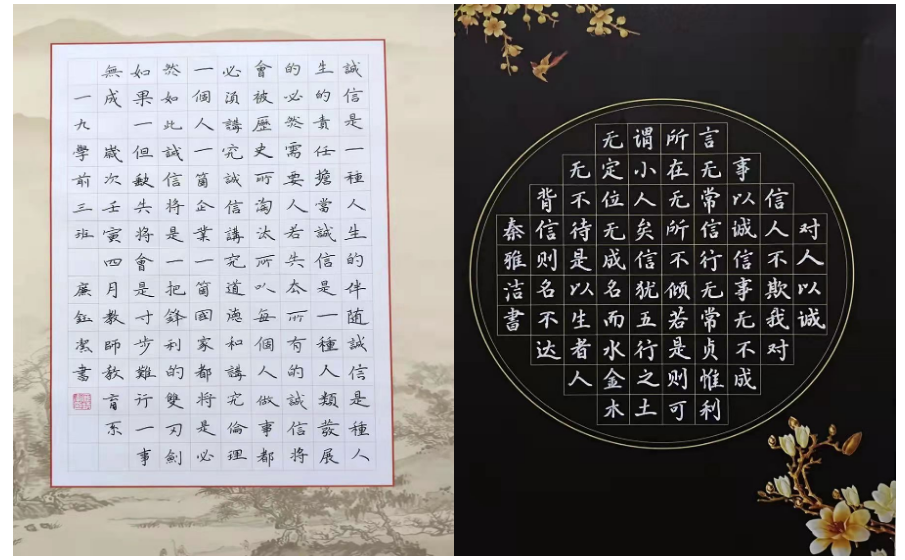 誠信是一種人生的伴随誠信是種人
生的責任擔當誠信是一種人類發展
的必然需要人若失去所有的誠信將
會被歷史所淘汰所以每個人做事都
必須講究誠信講究道德和講究倫理
一個人一箇企業一箇國家都將是必
然如此誠信將是一把鋒利的雙刃劍
如果一但缺失將會是寸步難行一事
無成 歲次壬寅四月教師教育系
一九學前三班 廉鈺潔書
对人以诚
信人不欺我对
事以诚信事无不成
言无常信行无常贞惟利
所在无所不倾若是则可
谓小人矣信犹五行之土
无定位无成名而水金木
无不待是以生者人
背信则名不达
秦雅洁书